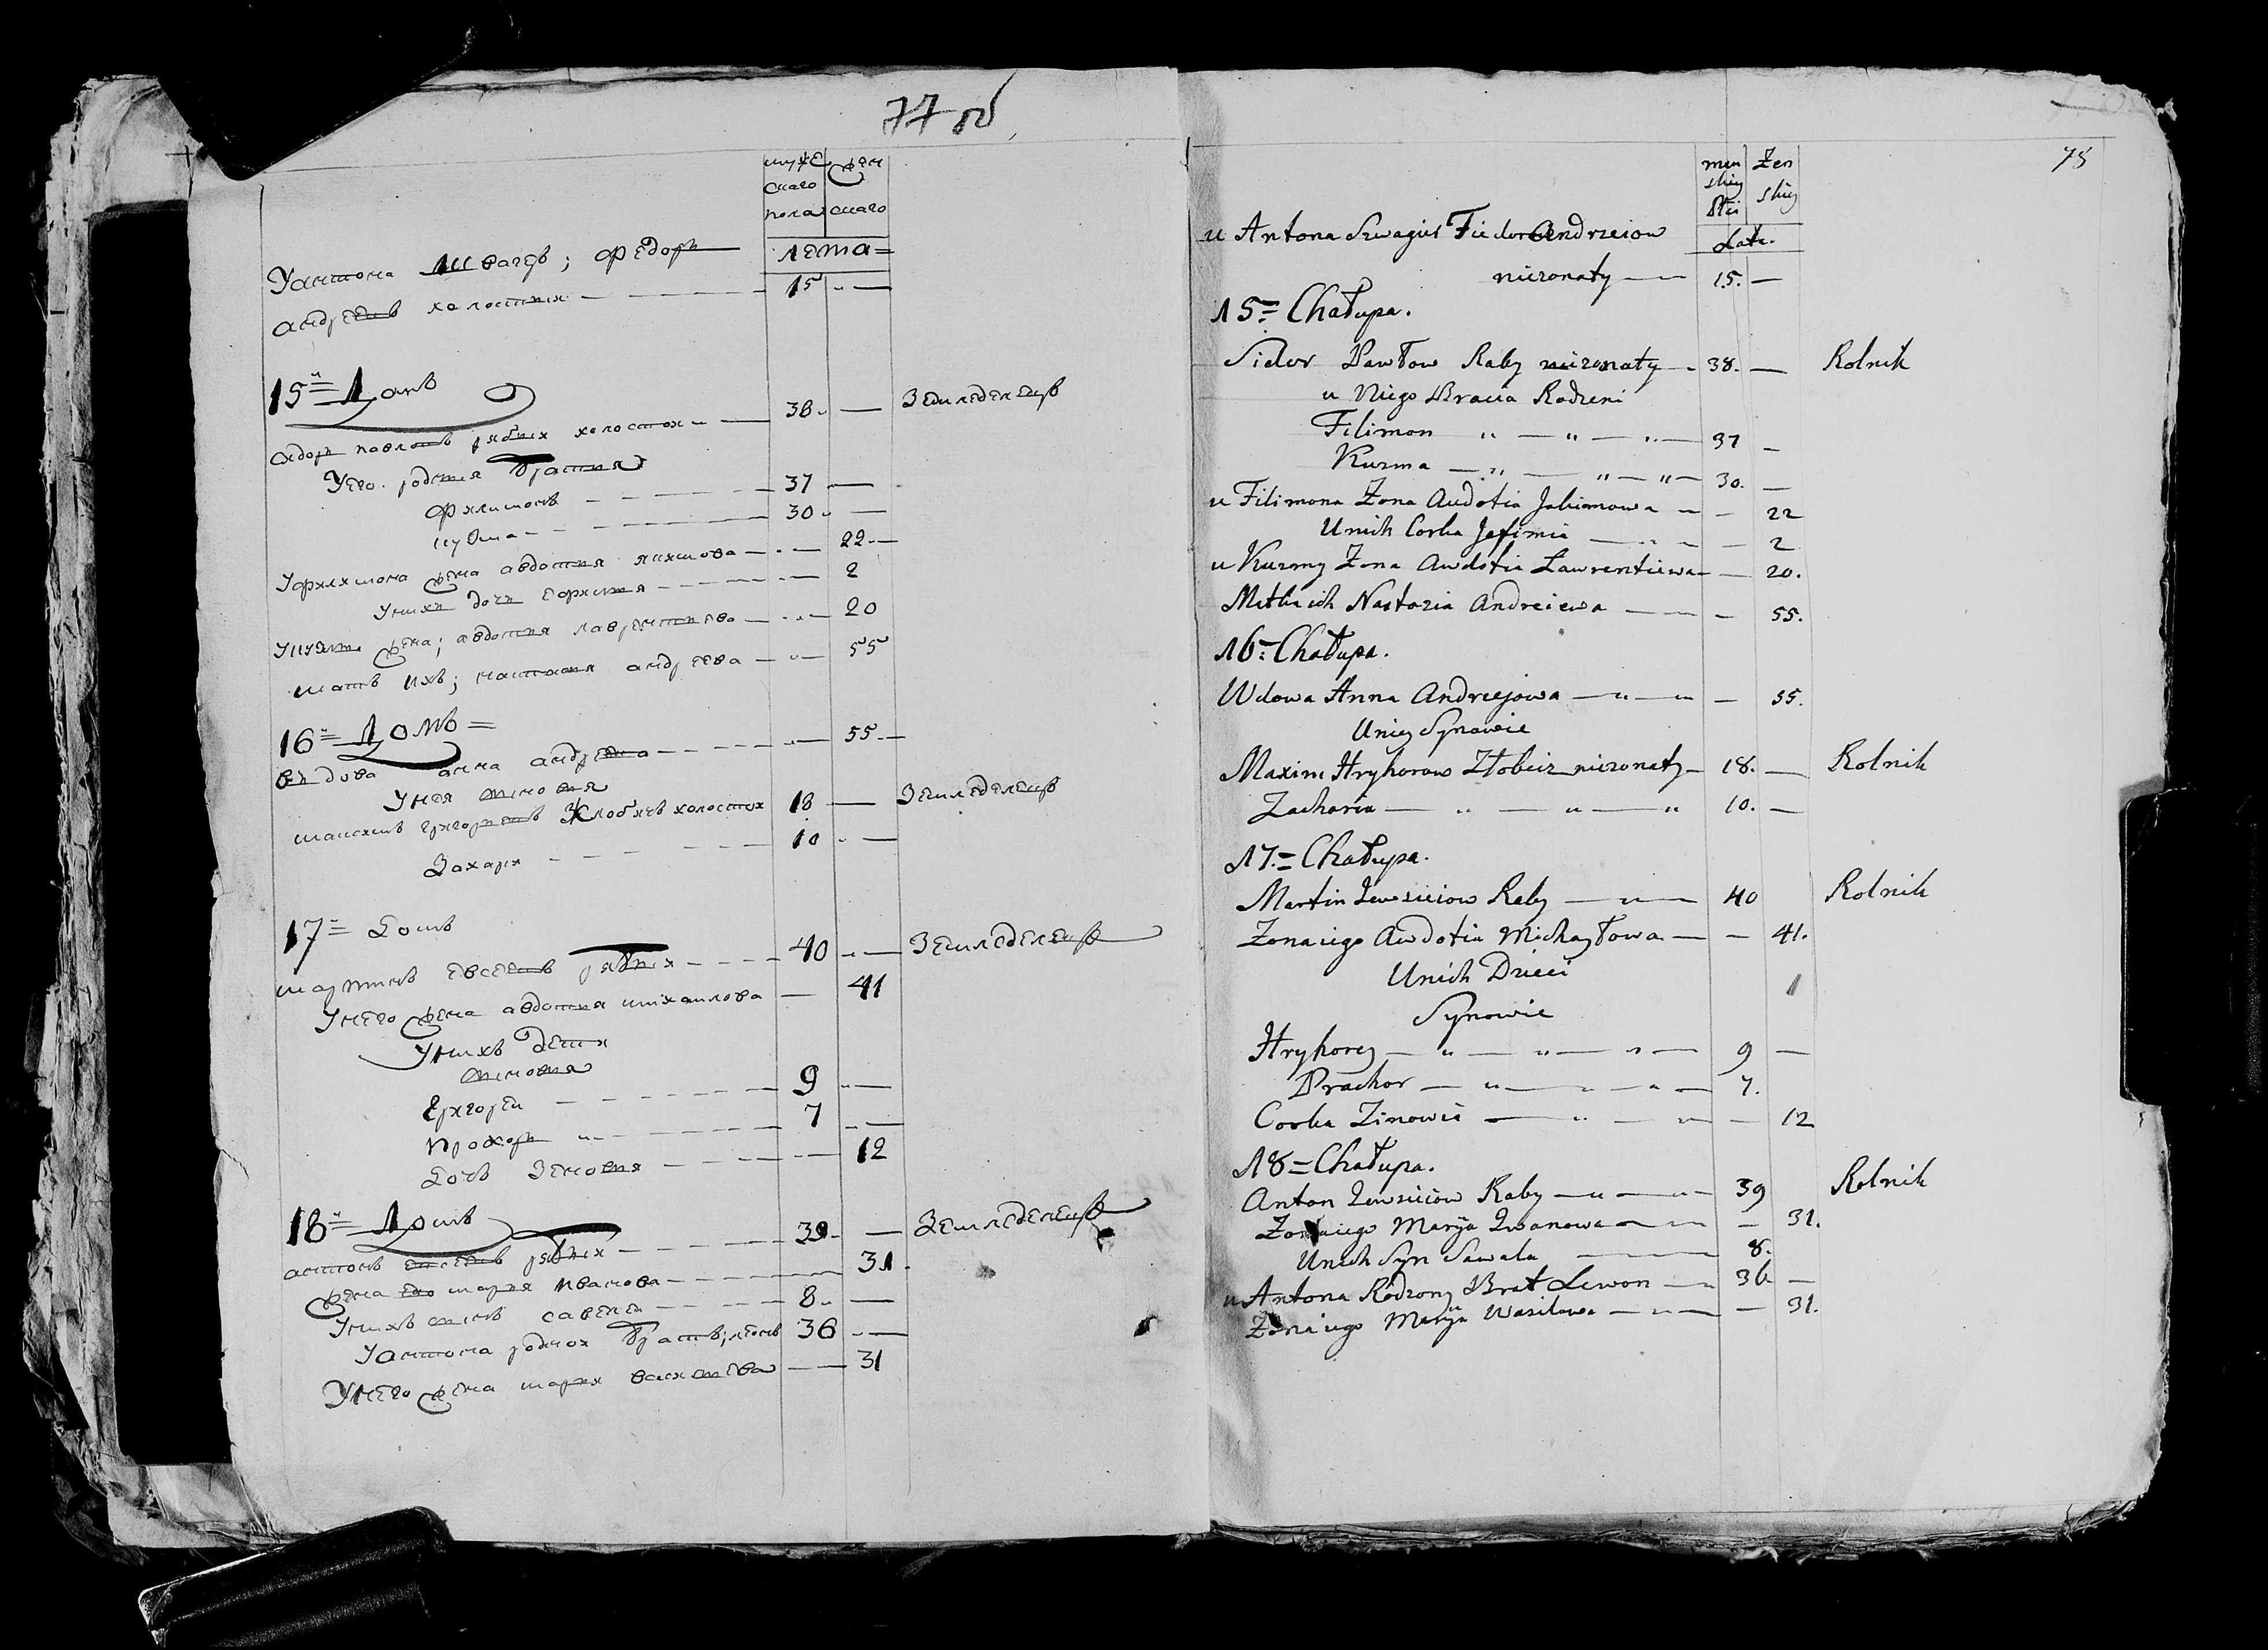 77 об
муже жен
скаго
пола скаго
лета =
У антона Швагер; федоръ
андреевъ холостыи — 15 —
15й домъ
сидоръ павловъ рябыи холостои — 38 — земледелецъ
У его родныя братия
филимонъ — 37 —
кузма — 30 —
У филимона жена авдотия якимова — 22 —
У нихъ дочь ефимия — 2
У кузмы жена; авдотия лаврентиева — 20
мать ихъ; настасия андреева — 55
16й домъ =
вдова анна андреева — 55 —
У нея сыновья
максимъ григорьевъ Жлобичъ холостыи 18 — земледелецъ
Захари — 10 —
17 = домъ
мартинъ евсеевъ рябыи — 40 — земледелецъ
У него жена авдотия михаилова — 41
У нихъ дети
сыновья
григореи — 9 —
прохоръ — 7 —
дочь Зеновия — 12
18й домъ
антонъ евсеевъ рябыи — 39 — земледелецъ
жена его мария иванова — 31
У нихъ сынъ савела — 8 —
У антона роднои братъ; леонъ 36 —
У него жена мария василева — 31
78
men Żen
skiey skiey
Płci
Lata.
u Antona Szwagier Fiedor Andrzeiow
nieżonaty — 15. —
15 = Chałupa.
Sidor Pawłow Raby nieżonaty — 38. — Rolnik
u Niego Bracia Rodzeni
Filimon " — " — " — 37 —
Kuzma — " — " — " — 30. —
u Filimona Żona Audotia Jakimowa — — 22
Unich Corka Jefimia — " — — 2
u Kuzmy Żona Awdotia Lawrentiewa — — 20.
Matka ich Nastazia Andreiewa — — 55.
16 = Chałupa.
Wdowa Anna Andrzejowa — " — " — 55.
Uniey Synowie
Maxim Hryhorow Złobicz nieżonaty — 18. — Rolnik
Zacharia — " — " — " 10. —
17. = Chałupa.
Martin Jewsieiow Raby — " — 40 Rolnik
Żona iego Awdotia Michayłowa — — 41.
Unich Dzieci
Synowie
Hryhorey — " — " — " — 9 —
Prachor — " — " — " — 7.
Corka Zinowia — " — " — 12
18 = Chałupa.
Anton Jewsieiow Raby — " — " — 39 Rolnik
Żona iego Marÿa Iwanowa — " — — 31.
Unich Syn Sawela — 8.
u Antona Rodzony Brat Lewon — 36 —
Żona iego Marÿa Wasilowa — " — — 31.